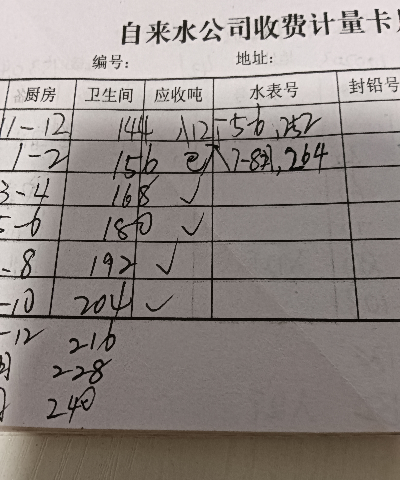 自来水公司收费计量卡
编号: 地址:
厨房 卫生间 应收吨 水表号 封铅号
11-12 144 12 5-6, 252
1-2 156 7-8, 264
3-4 168 ✓
5-6 180 ✓
-8 192 ✓
-10 204 ✓
-12 216
228
240